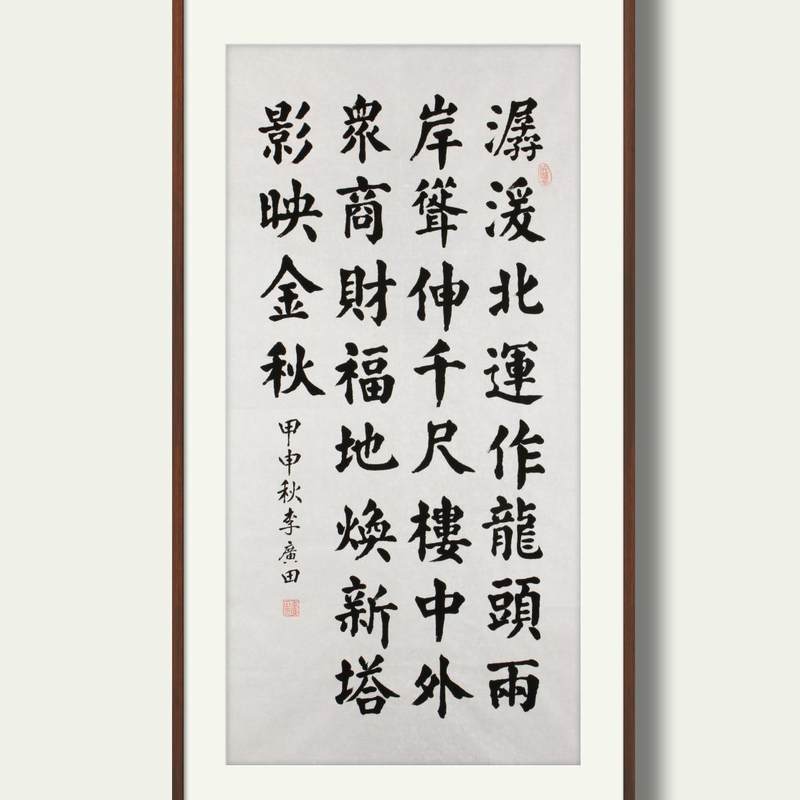 潺湲北運作龍頭兩
岸聳伸千尺樓中外
眾商財福地煥新塔
影映金秋
甲申秋李廣田